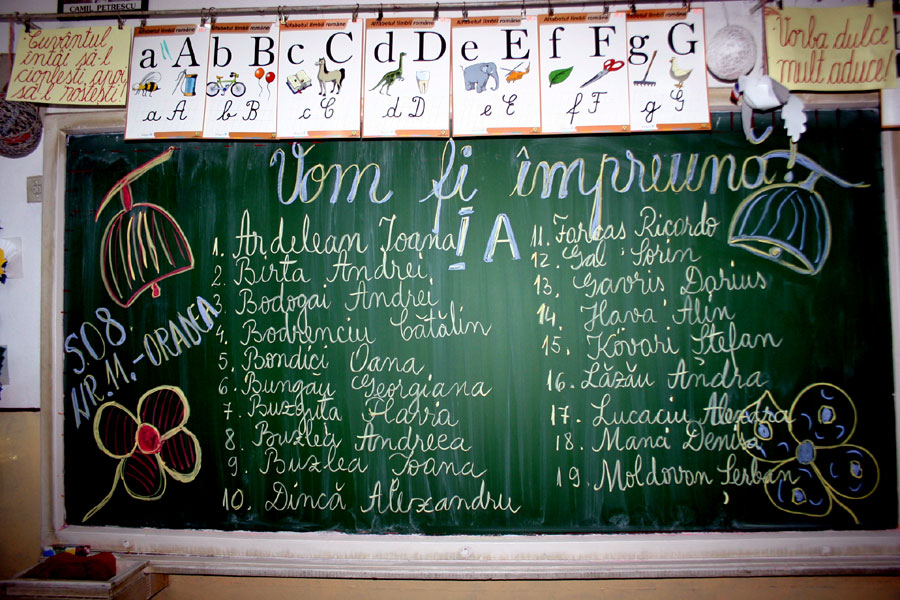 CAMIL PETRESCU
Cuvântul
întâi să-l
cioplești, apoi
să-l rostești!
Alfabetul limbii române
a A
a A
Alfabetul limbii române
b B
b B
Alfabetul limbii române
c C
c C
Alfabetul limbii române
d D
d D
Alfabetul limbii române
e E
e E
Alfabetul limbii române
f F
f F
Alfabetul limbii române
g G
g G
Vorba dulce
mult aduce!
Vom fi împreună!
I A
SO8
NR. 11,-ORADEA
1. Ardelean Ioana
2. Birta Andrei
3. Bodogai Andrei
4. Bodrenciu Cătălin
5. Bondici Oana
6. Bungău Georgiana
7. Buzguța Flavia
8. Buzlea Andreea
9. Buzlea Ioana
10. Dincă Alexandru
11. Farcaș Ricardo
12. Gal Sorin
13. Gavriș Darius
14. Hava Alin
15. Kövari Ștefan
16. Lăzău Andra
17. Lucaciu Alexdra
18. Manci Denisa
19. Moldovan Șerban